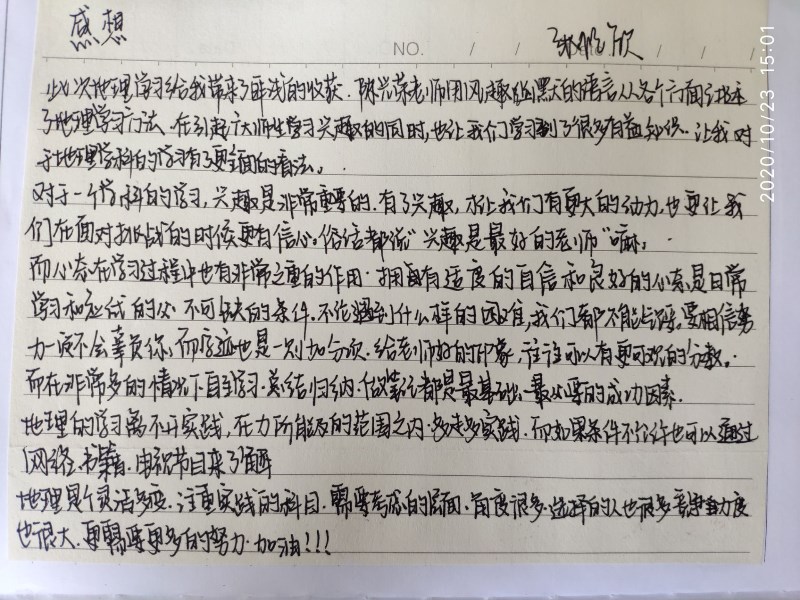 感想
NO. / / / / /
2020/10/23 15:01
此次地理学习给我带来了匪浅的收获.陈兴荣老师用风趣幽默的语言从各个方面讲述
了地理学习方法.在引起广大师生学习兴趣的同时,也让我们学习到了很多有益知识.让我对
于地理学科的学习有了更全面的看法。
对于一个学科的学习,兴趣是非常重要的.有了兴趣,才让我们有更大的动力.也更让我
们在面对挑战的时候更有信心。俗话都说"兴趣是最好的老师"嘛。
而心态在学习过程中也有非常之重的作用.拥有适度的自信和良好的心态是日常
学习和应试的必不可缺的条件.不论遇到什么样的困难,我们都不能占据。要相信努
力一定不会辜负你,而字迹也是一别加分项.给老师好的印象,往往可以有更可观的分数。
而在非常多的情况下自主学习.总结归纳.做笔记都是最基础.最必要的成功因素.
地理的学习离不开实践,在力所能及的范围之内.多走多实践.而如果条件不允许也可以通过
网络.书籍.电视节目来了解
地理是个灵活多变.注重实践的科目.需要考虑的层面.角度很多.选择的人也很多竞争力度
也很大.更需要更多的努力.加油!!!